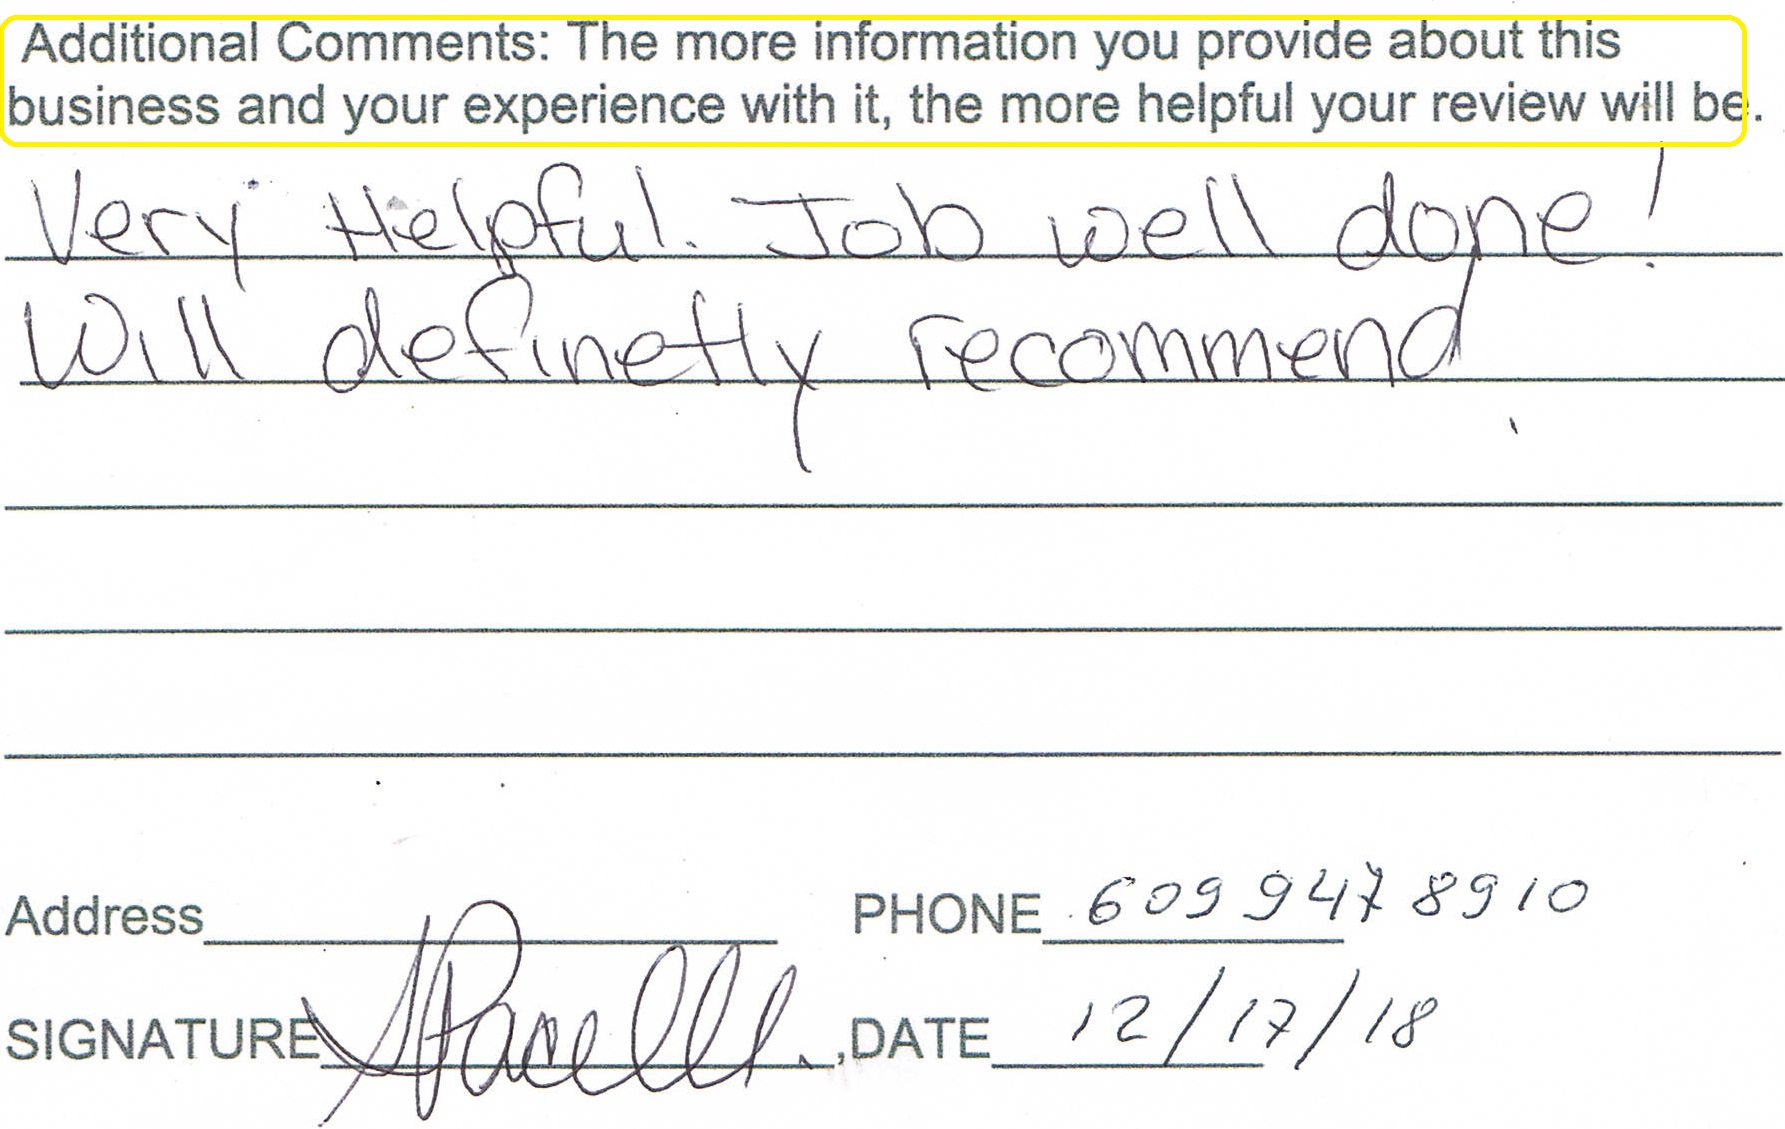 Additional Comments: The more information you provide about this
business and your experience with it, the more helpful your review will be.
Very Helpful. Job well done!
Will definetly recommend.
Address
PHONE 609 947 8910
SIGNATURE
,DATE 12/17/18